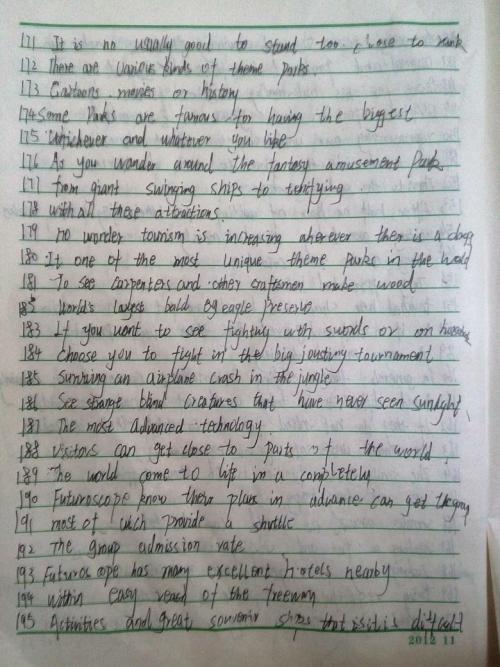 171 It is no usually good to stand too close to rank
172 There are various kinds of theme parks.
173 Cartoons movies or history
174 Some Parks are famous for having the biggest
175 Whichever and whatever you like
176 As you wander around the fantasy amusement Park
177 from giant swinging ships to terrifying
178 with all these attractions.
179 no wonder tourism is increasing wherever there is a
180 It one of the most unique theme parks in the world
181 To see carpenters and other craftsmen make wood
182 World's largest bald eagle preserve
183 If you want to see fighting with swords or on
184 choose you to fight in the big jousting tournament
185 Surviving an airplane crash in the jungle
186 See strange blind creatures that have never seen sunlight
187 The most advanced technology.
188 visitors can get close to parts of the world
189 The world come to life in a completely
190 Futuroscope know there plans in advance can get the
191 most of wich provide a shuttle
192 The group admission rate
193 Futuroscope has many excellent hotels nearby
194 within easy reach of the freeway
195 Activities and great souvenir shops that visit is
2012 11